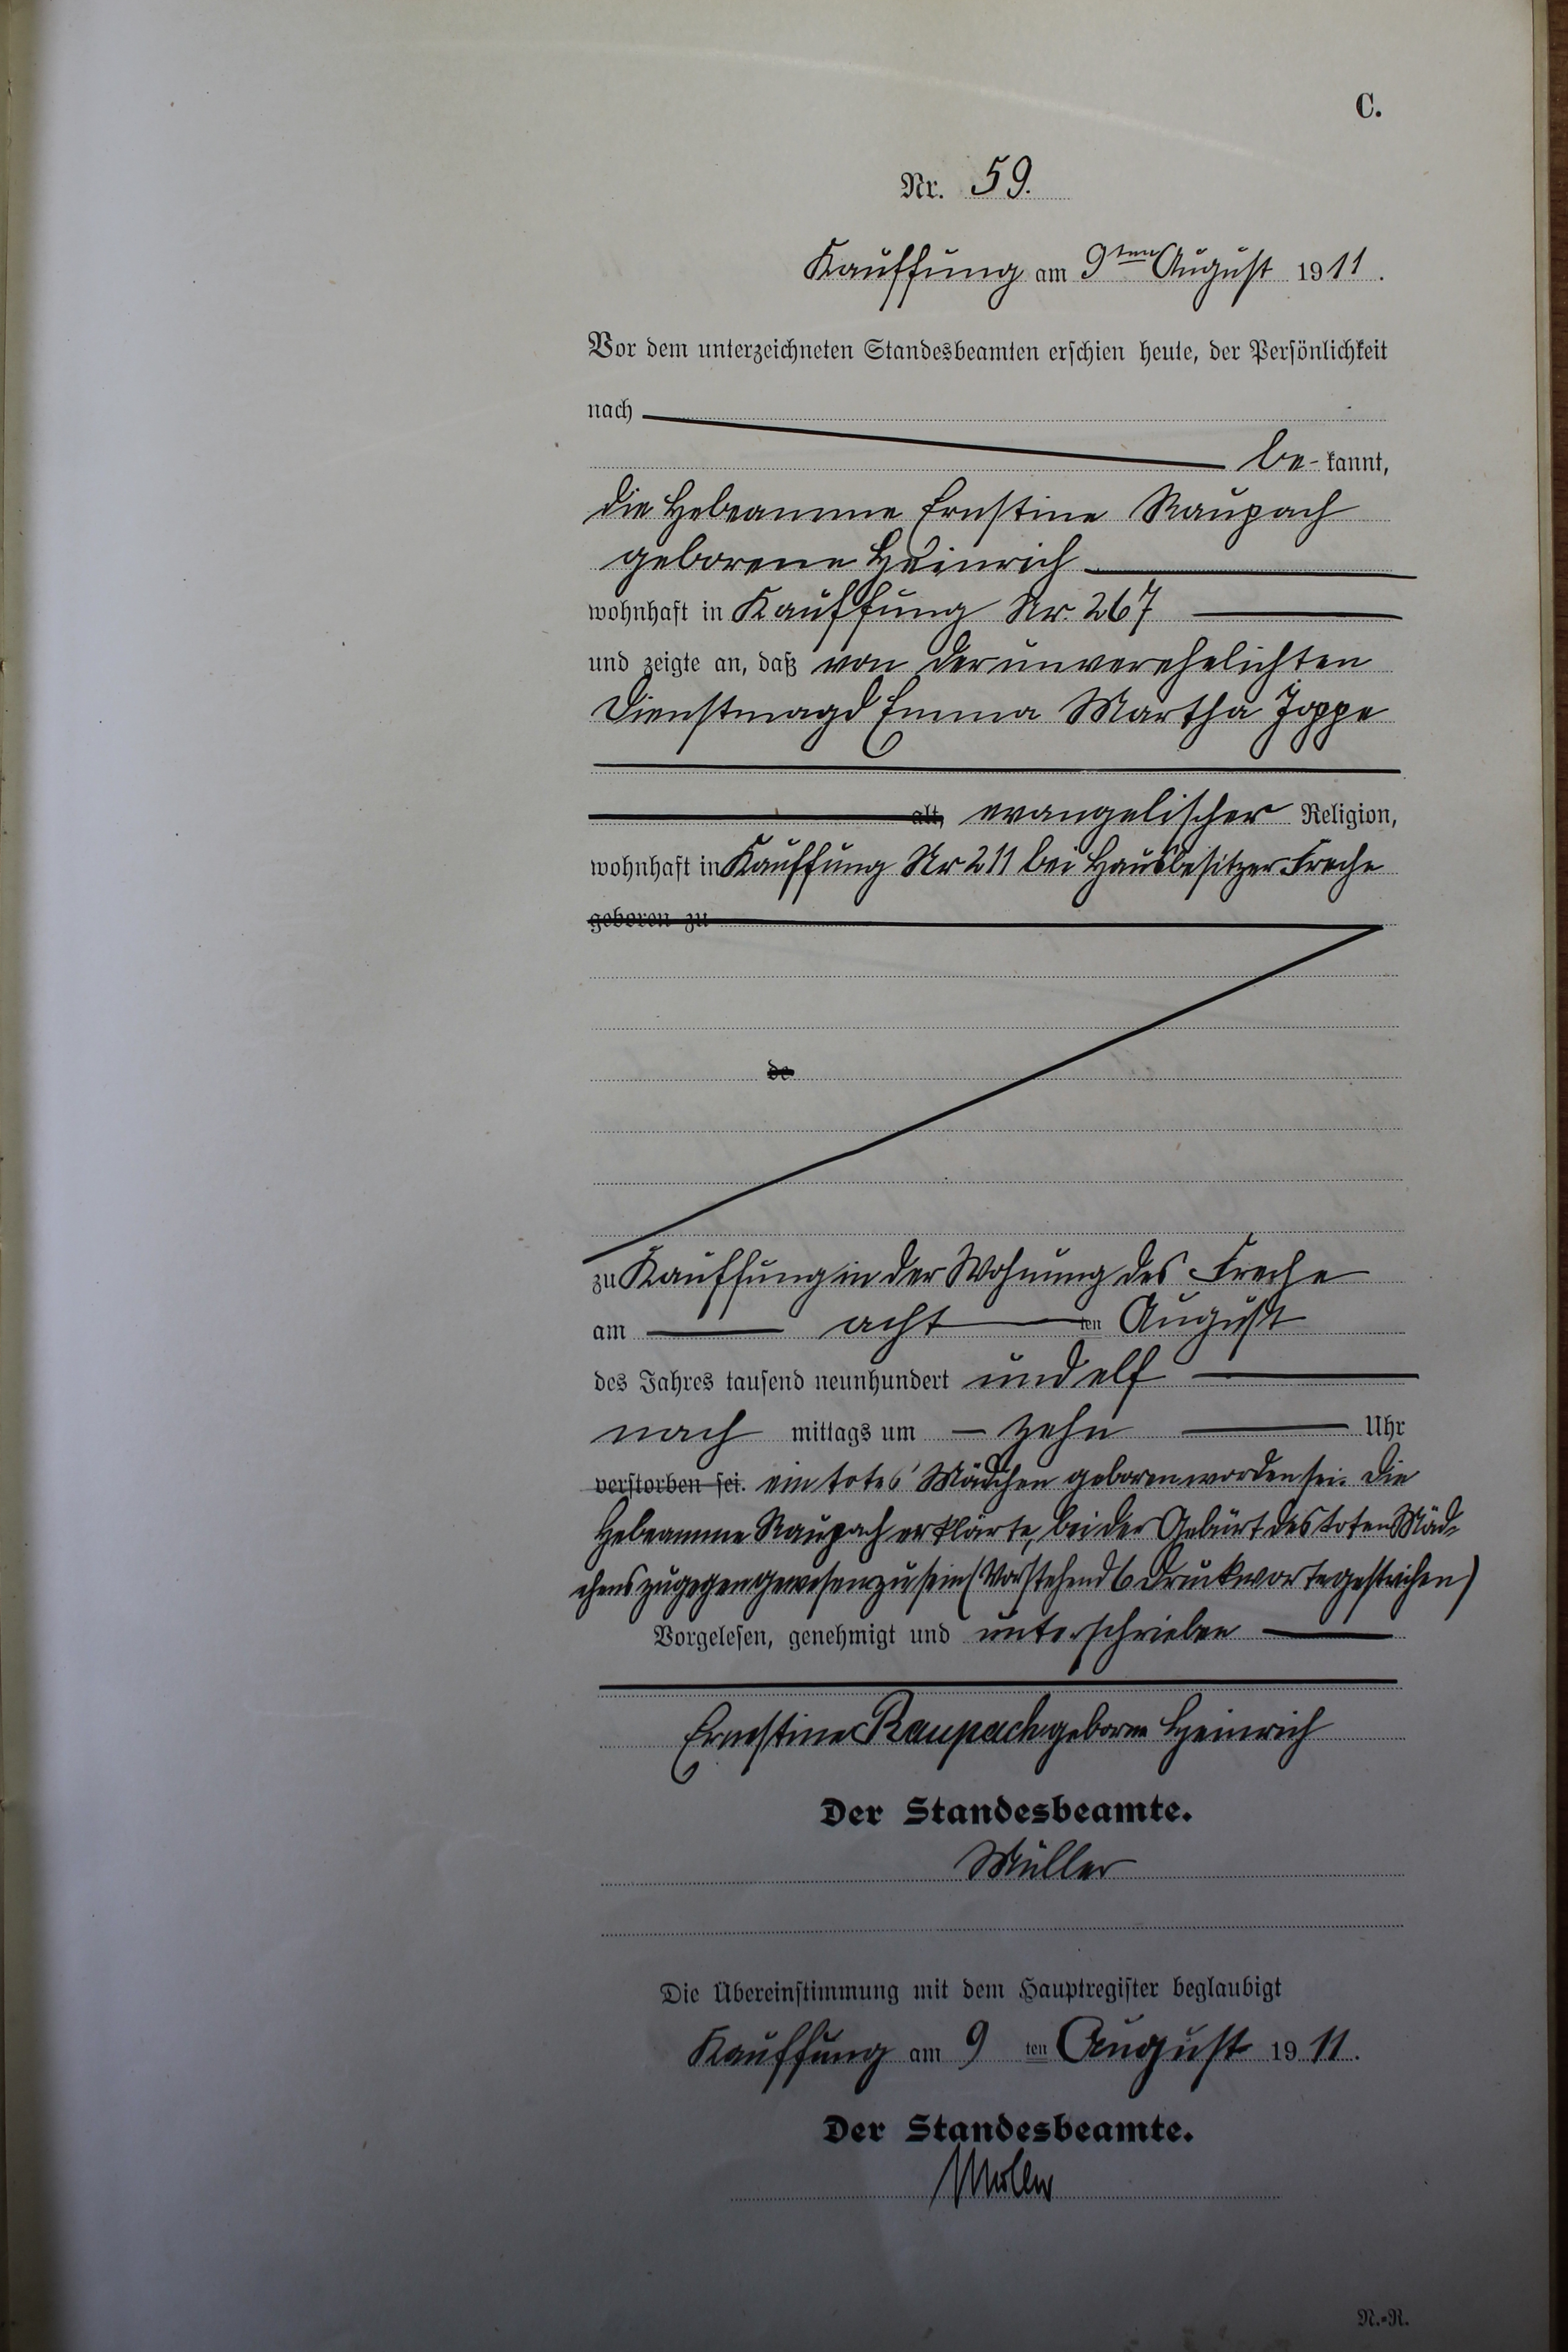 C.
Nr. 59.
Kauffung am 9ten August 1911.
Vor dem unterzeichneten Standesbeamten erschien heute, der Persönlichkeit
nach
be- kannt,
die Hebeamme Ernstine Raupach
geborene Heinrich
wohnhaft in Kauffung Nr. 267
und zeigte an, daß von der unverehelichten
Dienstmagd Emma Martha Joppe
alt, evangelischer Religion,
wohnhaft in Kauffung Nr 211 bei Hausbesitzer Freche
geboren zu
de
zu Kauffung in der Wohnung des Freche
am acht ten August
des Jahres tausend neunhundert und elf
nach mittags um zehn Uhr
verstorben sei. ein totes Mädchen geboren worden sei. Die
Hebeamme Raupach erklärte, bei der Geburt des toten Mäd-
chens zugegen gewesen zu sein (Vorstehend 6 Druckworte gestrichen)
Vorgelesen, genehmigt und unterschrieben
Ernestine Raupach geborne Heinrich
Der Standesbeamte.
Müller
Die Übereinstimmung mit dem Hauptregister beglaubigt
Kauffung am 9 ten August 1911.
Der Standesbeamte.
Müller
N.=R.